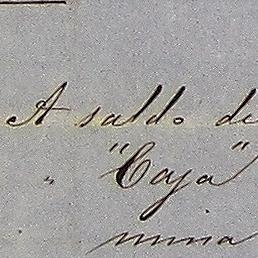 A saldo de
" "Caja"
mina